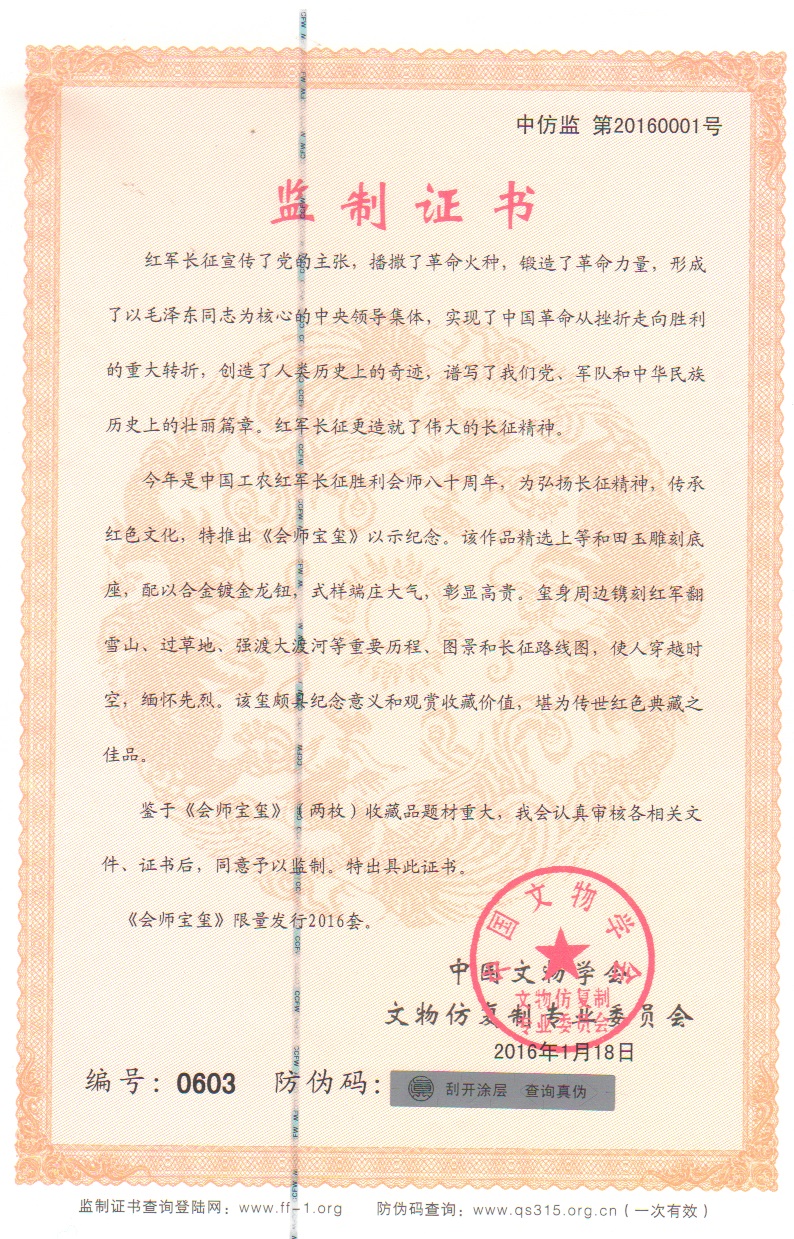 中仿监 第20160001号
监制证书
红军长征宣传了党的主张，播撒了革命火种，锻造了革命力量，形成
了以毛泽东同志为核心的中央领导集体，实现了中国革命从挫折走向胜利
的重大转折，创造了人类历史上的奇迹，谱写了我们党、军队和中华民族
历史上的壮丽篇章。红军长征更造就了伟大的长征精神。
今年是中国工农红军长征胜利会师八十周年，为弘扬长征精神，传承
红色文化，特推出《会师宝玺》以示纪念。该作品精选上等和田玉雕刻底
座，配以合金镀金龙钮，式样端庄大气，彰显高贵。玺身周边镌刻红军翻
雪山、过草地、强渡大渡河等重要历程、图景和长征路线图，使人穿越时
空，缅怀先烈。该玺颇具纪念意义和观赏收藏价值，堪为传世红色典藏之
佳品。
鉴于《会师宝玺》（两枚）收藏品题材重大，我会认真审核各相关文
件、证书后，同意予以监制。特出具此证书。
《会师宝玺》限量发行2016套。
中国文物学会
文物仿复制
专业委员会
中国文物学会
文物仿复制专业委员会
2016年1月18日
编号：0603 防伪码：刮开涂层 查询真伪
监制证书查询登陆网：www.ff-1.org 防伪码查询：www.qs315.org.cn（一次有效）